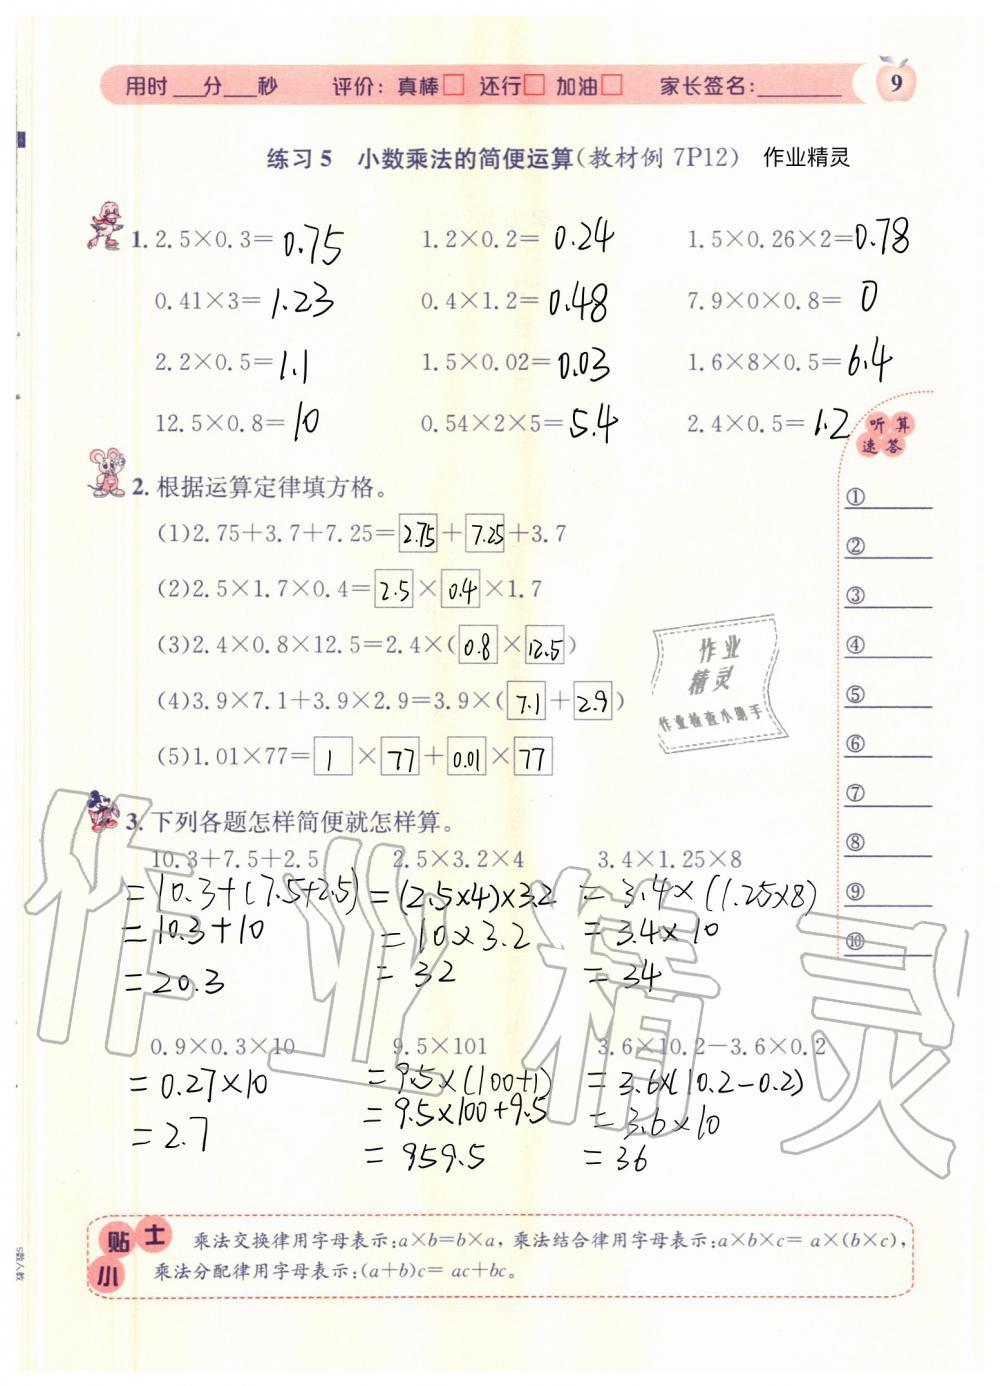 用时___分___秒 评价：真棒□ 还行□ 加油□ 家长签名：______ 9
练习5 小数乘法的简便运算(教材例7P12) 作业精灵
1. 2.5×0.3= 0.75 1.2×0.2= 0.24 1.5×0.26×2=0.78
0.41×3= 1.23 0.4×1.2= 0.48 7.9×0×0.8= 0
2.2×0.5= 1.1 1.5×0.02= 0.03 1.6×8×0.5= 6.4
12.5×0.8= 10 0.54×2×5= 5.4 2.4×0.5= 1.2
听算
速答
2. 根据运算定律填方格。
(1)2.75+3.7+7.25= 2.75 + 7.25 +3.7
(2)2.5×1.7×0.4= 2.5 × 0.4 ×1.7
(3)2.4×0.8×12.5=2.4×( 0.8 × 12.5 )
(4)3.9×7.1+3.9×2.9=3.9×( 7.1 + 2.9 )
(5)1.01×77= 1 × 77 + 0.01 × 77
①
②
③
④
⑤
⑥
⑦
⑧
⑨
⑩
作业
精灵
作业检查小助手
3. 下列各题怎样简便就怎样算。
10.3+7.5+2.5 2.5×3.2×4 3.4×1.25×8
=10.3+(7.5+2.5) =(2.5×4)×3.2 =3.4×(1.25×8)
=10.3+10 =10×3.2 =3.4×10
=20.3 =32 =34
0.9×0.3×10 9.5×101 3.6×10.2-3.6×0.2
=0.27×10 =9.5×(100+1) =3.6×(10.2-0.2)
=2.7 =9.5×100+9.5 =3.6×10
=959.5 =36
作业精灵
小贴士
乘法交换律用字母表示:a×b=b×a，乘法结合律用字母表示:a×b×c= a×(b×c)，
乘法分配律用字母表示:(a+b)c= ac+bc。
5数人教